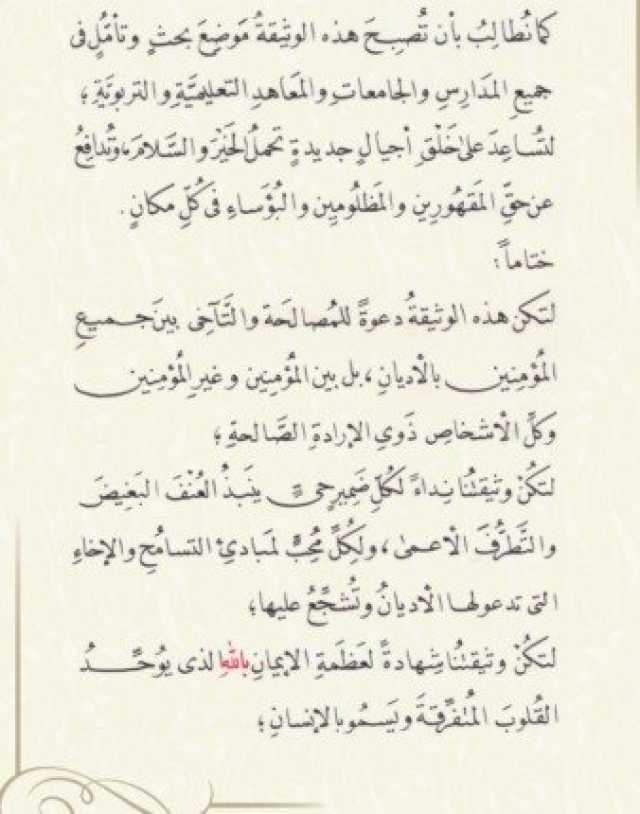 كما نُطالِبُ بأن تُصبِحَ هذه الوثيقةُ مَوضِعَ بحثٍ وتأمُّلٍ فى
جميعِ المدَارِسِ والجامعاتِ والمعَاهدِ التعليميَّةِ والتربويَّةِ؛
لتُساعِدَ على خَلْقِ أجيالٍ جديدةٍ تحملُ الخَيْرَ والسَّلامَ، وتُدافِعُ
عن حقِّ المَقهُورِين والمَظلُومِين والبُؤَساءِ فى كُلِّ مكانٍ.
ختاماً:
لتَكن هذه الوثيقةُ دعوةً للمُصالحَة والتَّآخى بينَ جميعِ
المُؤمِنين بالأديانِ، بل بين المُؤمِنِين وغيرِ المُؤمِنِين
وكلِّ الأشخاصِ ذَوِى الإرادةِ الصَّالحةِ؛
لتَكُنْ وثيقتُنا نِداءً لكُلِّ ضَمِيرٍ حىٍّ ينبَذُ العُنْفَ البَغِيضَ
والتَّطرُّفَ الأعمى، ولكُلِّ مُحِبٍّ لمَبادئِ التسامُحِ والإخاءِ
التى تدعو لها الأديانُ وتُشجِّعُ عليها؛
لتَكُنْ وثيقتُنا شِهادةً لعَظَمةِ الإيمانِ باللهِ الذى يُوحِّدُ
القُلوبَ المُتفرِّقةَ ويَسمُو بالإنسانِ؛